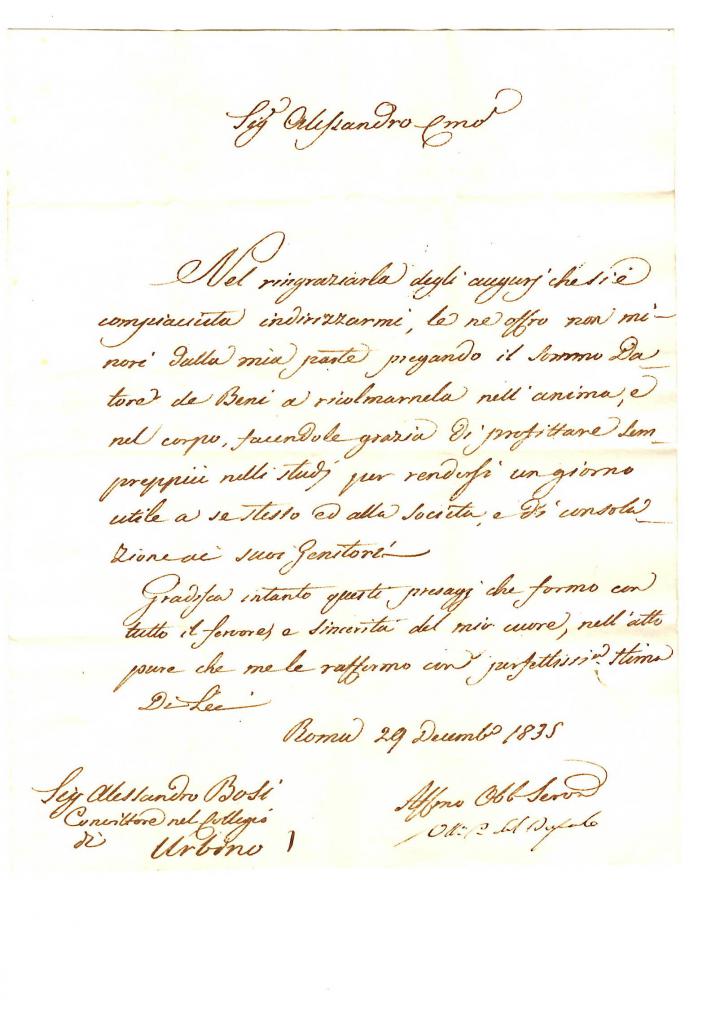 Sig.r Alessandro Emo
Nel ringraziarla degli augurj che si è
compiaciuta indirizzarmi, le ne offro non mi-
nori dalla mia parte pregando il Sommo Da-
tore de Beni a ricolmarnela nell'anima, e
nel corpo, facendole grazia di profittare sem-
preppiù nelli studj per rendersi un giorno
utile a se stesso ed alla società, e di consola-
zione ai suoi Genitori.
Gradisca intanto questi presagj che formo con
tutto il fervore, e sincerità del mio cuore, nell'atto
pure che me le raffermo con perfettissi.ma stima
Di Lei
Roma 29 Decemb.e 1835
Sig Alessandro Bosi
Convittore nel Collegio
di Urbino
Affmo Obb Serv